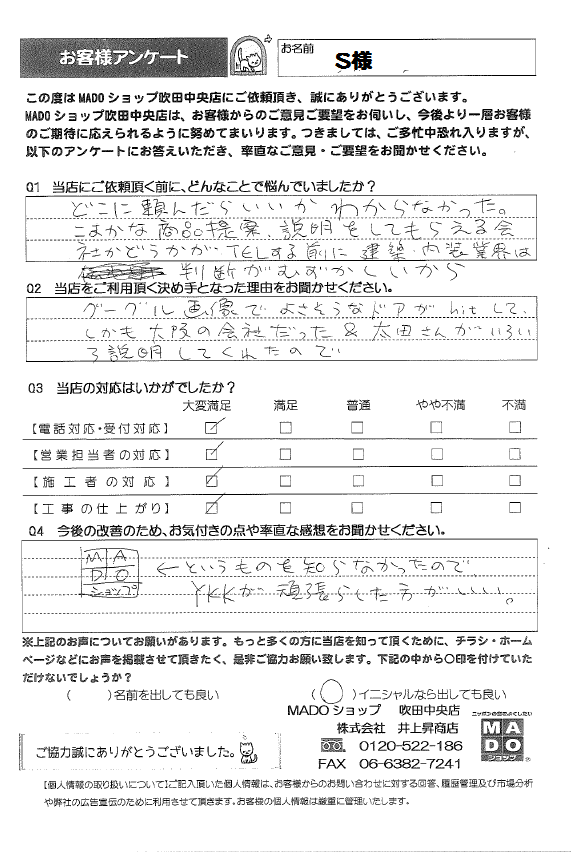 お客様アンケート
お名前
S様
この度はMADOショップ吹田中央店にご依頼頂き、誠にありがとうございます。
MADOショップ吹田中央店は、お客様からのご意見ご要望をお伺いし、今後より一層お客様
のご期待に応えられるように努めてまいります。つきましては、ご多忙中恐れ入りますが、
以下のアンケートにお答えいただき、率直なご意見・ご要望をお聞かせください。
Q1 当店にご依頼頂く前に、どんなことで悩んでいましたか？
どこに頼んだらいいかわからなかった。
こまかな商品提案、説明をしてもらえる会
社かどうかがTELする前に建築・内装業界は
判断がむずかしいから
Q2 当店をご利用頂く決め手となった理由をお聞かせください。
グーグル画像でよさそうなドアがhitして、
しかも大阪の会社だった & 太田さんがいろい
ろ説明してくれたので
Q3 当店の対応はいかがでしたか？
大変満足 満足 普通 やや不満 不満
【電話対応・受付対応】
【営業担当者の対応】
【施工者の対応】
【工事の仕上がり】
Q4 今後の改善のため、お気付きの点や率直な感想をお聞かせください。
MADO
ショップ
←というものを知らなかったので、
YKKが頑張らした方がいい。
※上記のお声についてお願いがあります。もっと多くの方に当店を知って頂くために、チラシ・ホーム
ページなどにお声を掲載させて頂きたく、是非ご協力お願い致します。下記の中から〇印を付けていた
だけないでしょうか？
( )名前を出しても良い (〇)イニシャルなら出しても良い
MADOショップ 吹田中央店
株式会社 井上昇商店
0120-522-186
FAX 06-6382-7241
MADO
ショップ
ご協力誠にありがとうございました。
【個人情報の取り扱いについて】ご記入頂いた個人情報は、お客様からのお問い合わせに対する回答、履歴管理及び市場分析
や弊社の広告宣伝のために利用させて頂きます。お客様の個人情報は厳重に管理いたします。